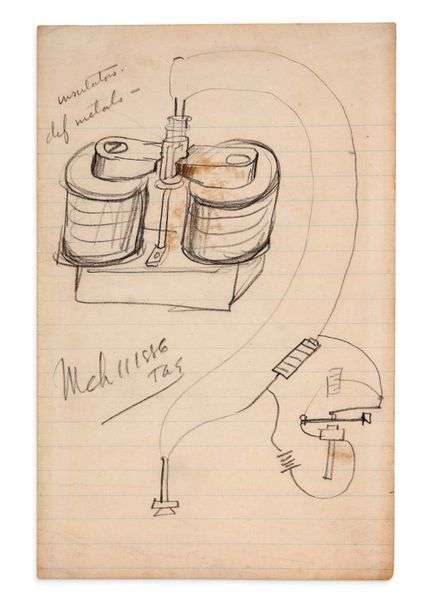 insulators.
metals –
Mch 11 1886
TAE